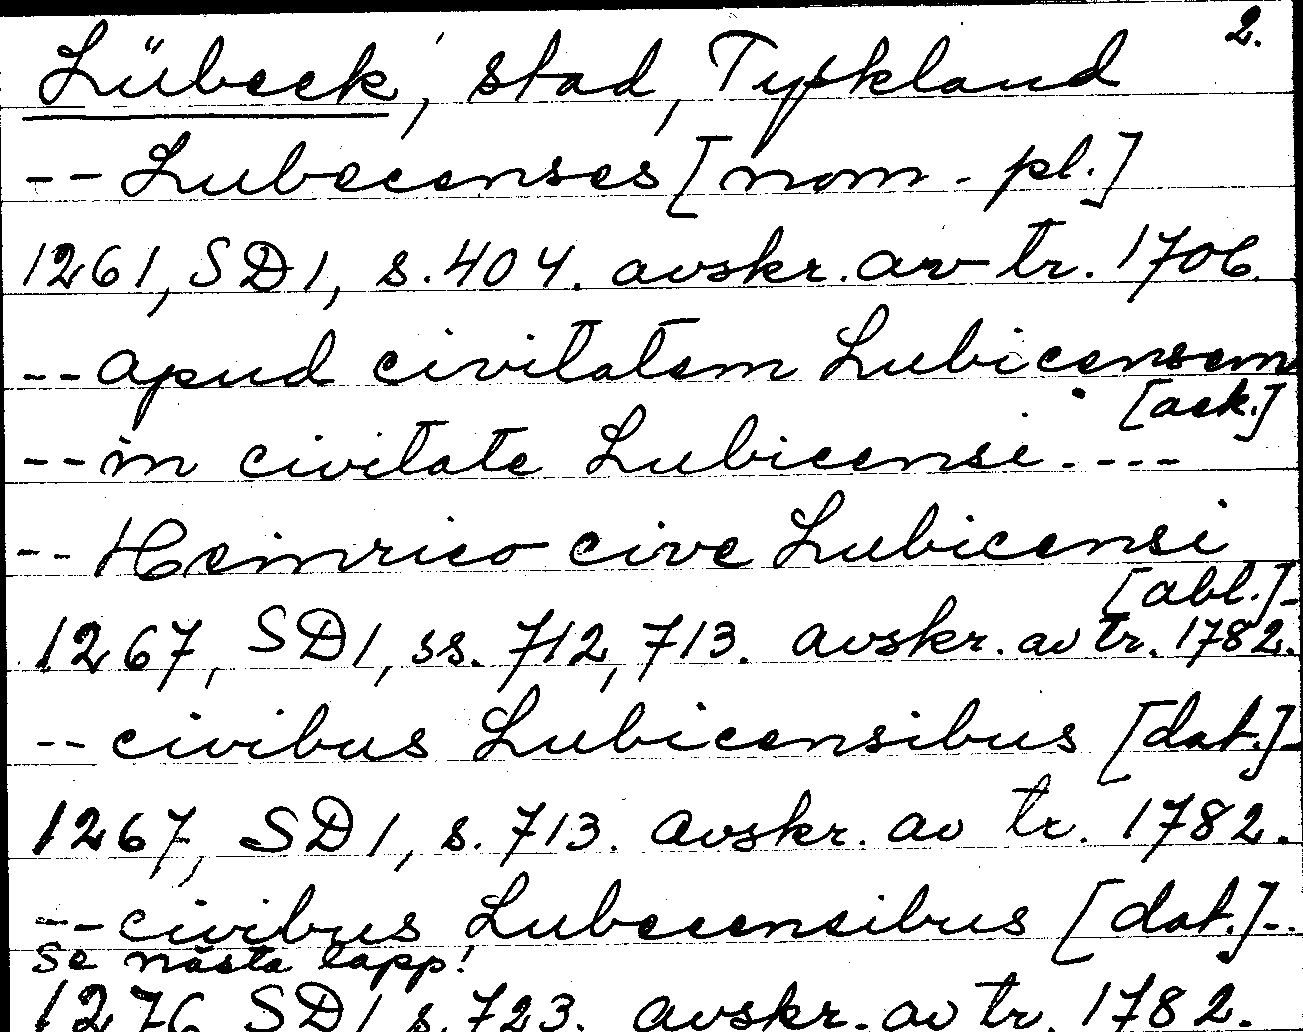 2.
Lübeck, stad, Tyskland
-- Lubecenses [nom. pl.]
1261, SD1, s. 404. avskr. av tr. 1706.
-- apud civitatem Lubicensem
[ack.]
-- in civitate Lubicensi. ---
-- Heinrico cive Lubicensi
[abl.]-
1267, SD1, ss. 712, 713. avskr. av tr. 1782.
-- civibus Lubicensibus [dat.]-
1267, SD1, s. 713. avskr. av tr. 1782.
-- civibus Lubecensibus [dat.]-.
Se nästa lapp!
1276 SD1 s. 723. avskr. av tr. 1782.